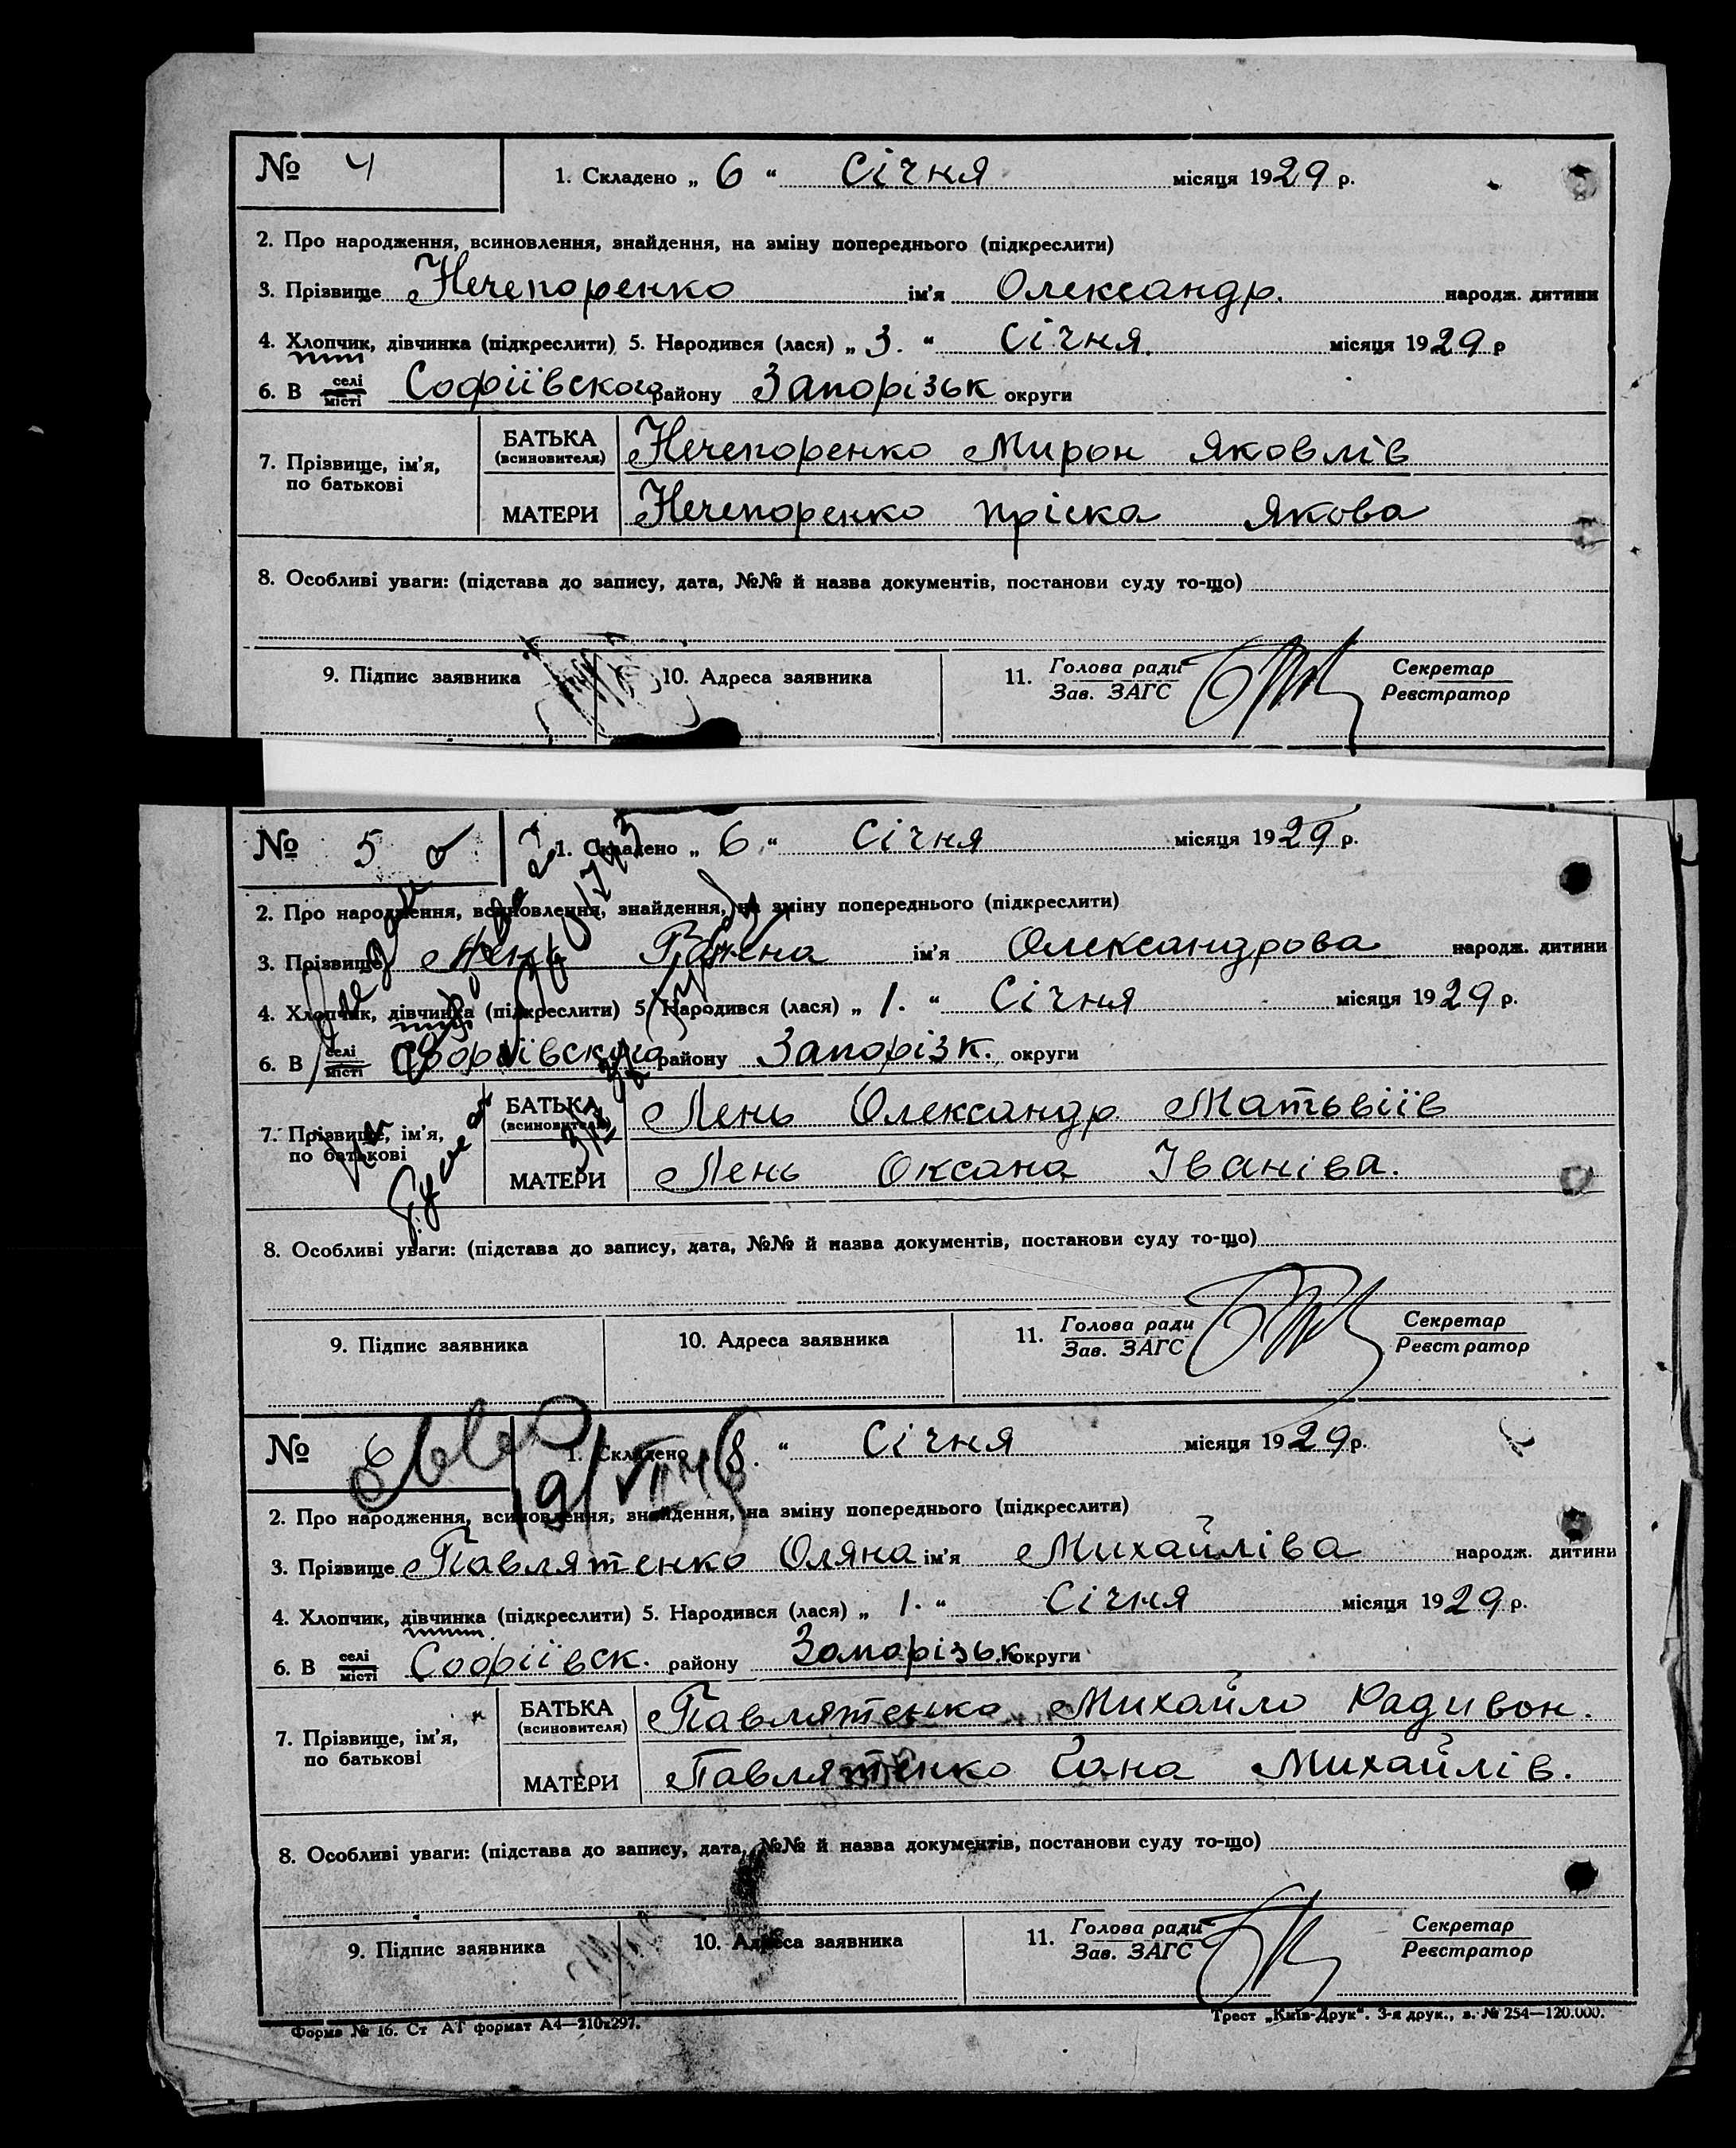 № 4
1. Складено „ 6 “ Січня місяця 1929 р.
2. Про народження, всиновлення, знайдення, на зміну попереднього (підкреслити)
3. Прізвище Нечепоренко ім'я Олександр. народж. дитини
4. Хлопчик, дівчинка (підкреслити) 5. Народився (лася) „ 3. “ Січня місяця 1929 р
6. В селі місті Софіївського району Запорізьк округи
7. Прізвище, ім'я, по батькові
БАТЬКА (всиновителя) Нечепоренко Мирон Яковлів
МАТЕРИ Нечепоренко Пріска Якова
8. Особливі уваги: (підстава до запису, дата, №№ й назва документів, постанови суду то-що)
9. Підпис заявника 10. Адреса заявника 11. Голова ради Зав. ЗАГС Секретар Реєстратор
№ 5
1. Складено „ 6 “ Січня місяця 1929 р.
2. Про народження, всиновлення, знайдення, на зміну попереднього (підкреслити)
3. Прізвище Лень ім'я Олександрова народж. дитини
4. Хлопчик, дівчинка (підкреслити) 5. Народився (лася) „ 1. “ Січня місяця 1929 р.
6. В селі місті Софіївського району Запорізк. округи
7. Прізвище, ім'я, по батькові
БАТЬКА (всиновителя) Лень Олександр Матьвіїв
МАТЕРИ Лень Оксана Іваніва.
8. Особливі уваги: (підстава до запису, дата, №№ й назва документів, постанови суду то-що)
9. Підпис заявника 10. Адреса заявника 11. Голова ради Зав. ЗАГС Секретар Реєстратор
№ 6
1. Складено 8. “ Січня місяця 1929 р.
2. Про народження, всиновлення, знайдення, на зміну попереднього (підкреслити)
3. Прізвище Павлятенко Оляна ім'я Михайліва народж. дитини
4. Хлопчик, дівчинка (підкреслити) 5. Народився (лася) „ 1. “ Січня місяця 1929 р.
6. В селі місті Софіївск. району Запорізьк округи
7. Прізвище, ім'я, по батькові
БАТЬКА (всиновителя) Павлятенко Михайло Радивон.
МАТЕРИ Павлятенко Михайлів.
8. Особливі уваги: (підстава до запису, дата, №№ й назва документів, постанови суду то-що)
9. Підпис заявника 10. Адреса заявника 11. Голова ради Зав. ЗАГС Секретар Реєстратор
Форма № 16. Ст АТ формат А4—210x297. Трест „Київ-Друк“. 3-я друк., з. № 254—120.000.